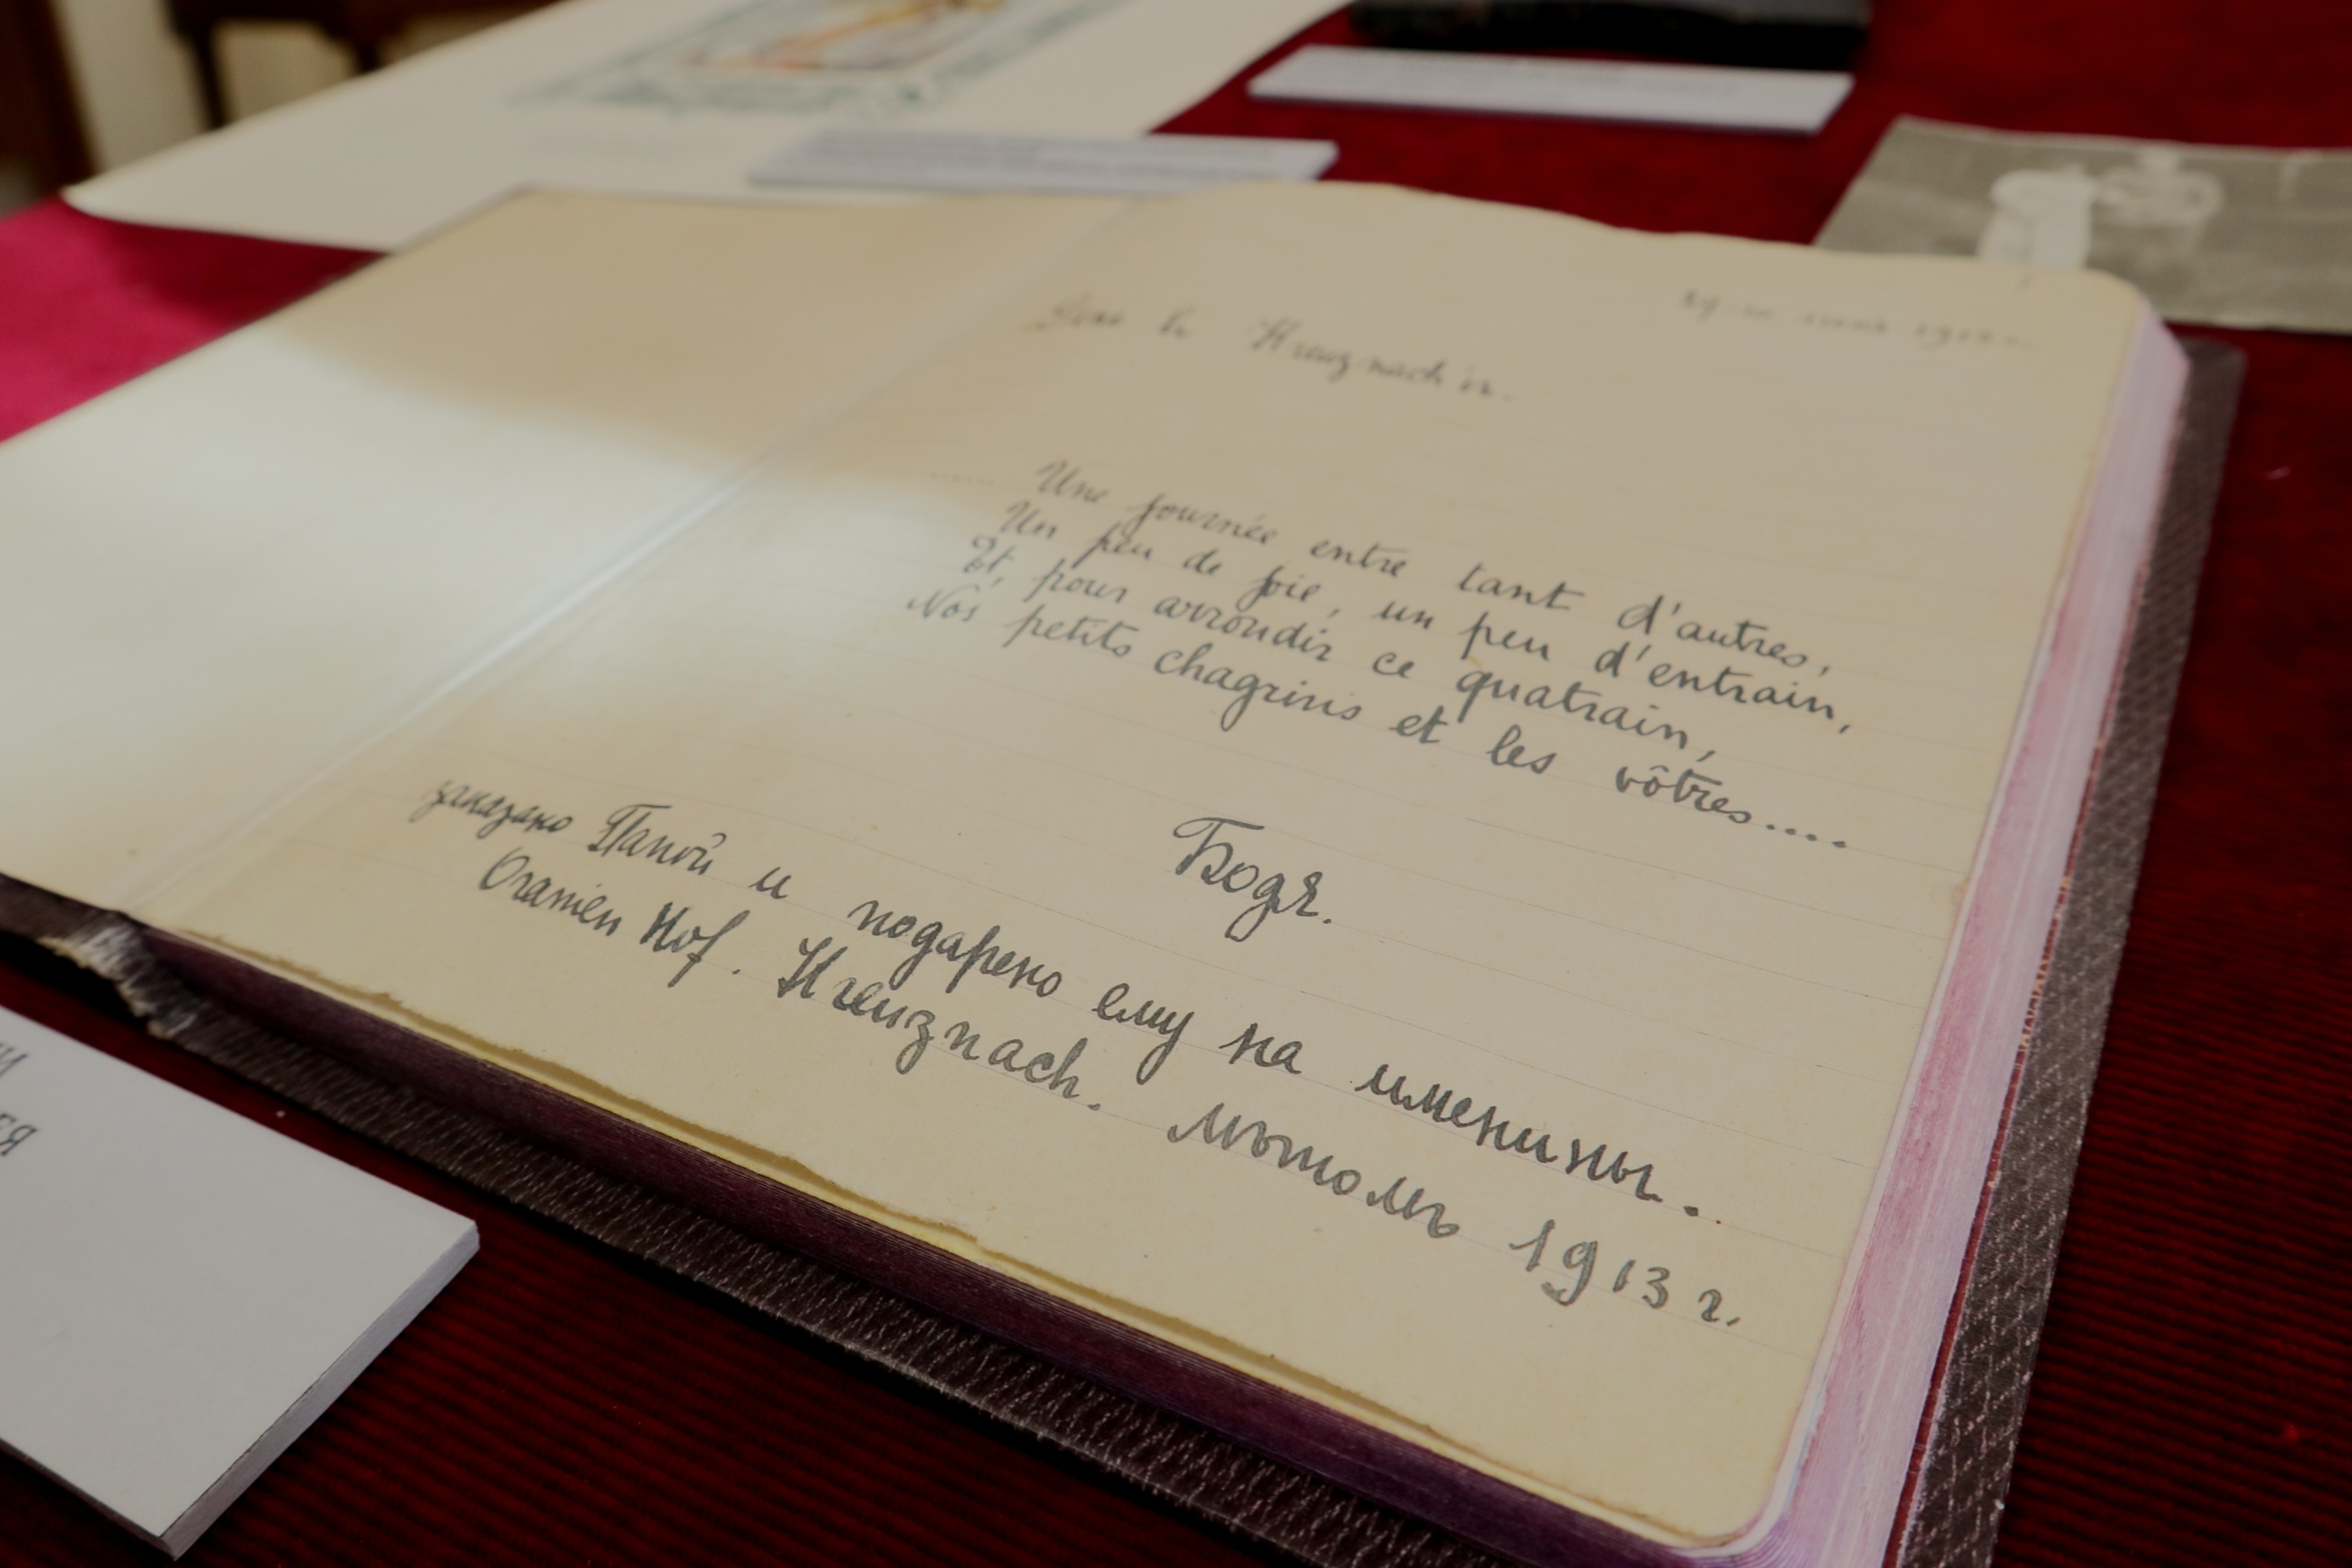 Kreuznach'ѣ.
Une journée entre tant d'autres,
Un peu de joie, un peu d'entrain,
Et, pour arrondir ce quatrain,
Nos petits chagrins et les vôtres....
Бодя.
заказано Папой и подарено ему на именины.
Oranien Hof. Kreuznach. лѣтомъ 1913 г.